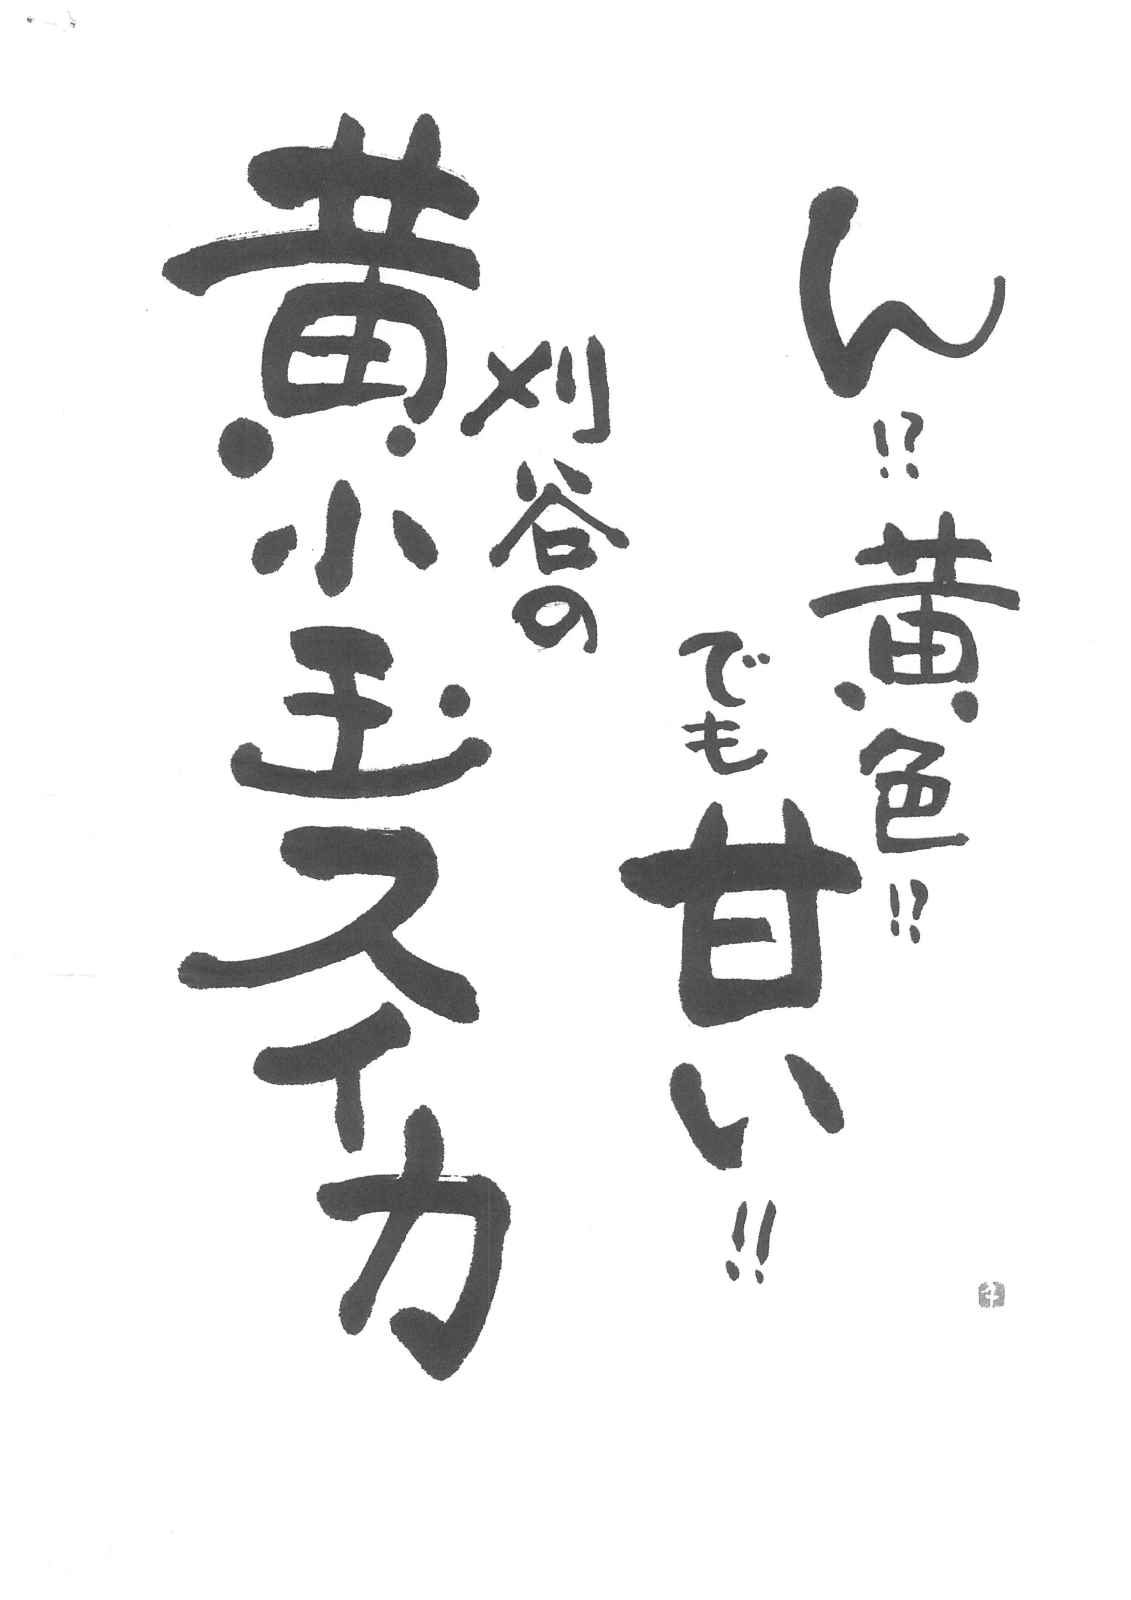 ん!?
黄色!?
でも甘い!!
刈谷の
黄小玉スイカ